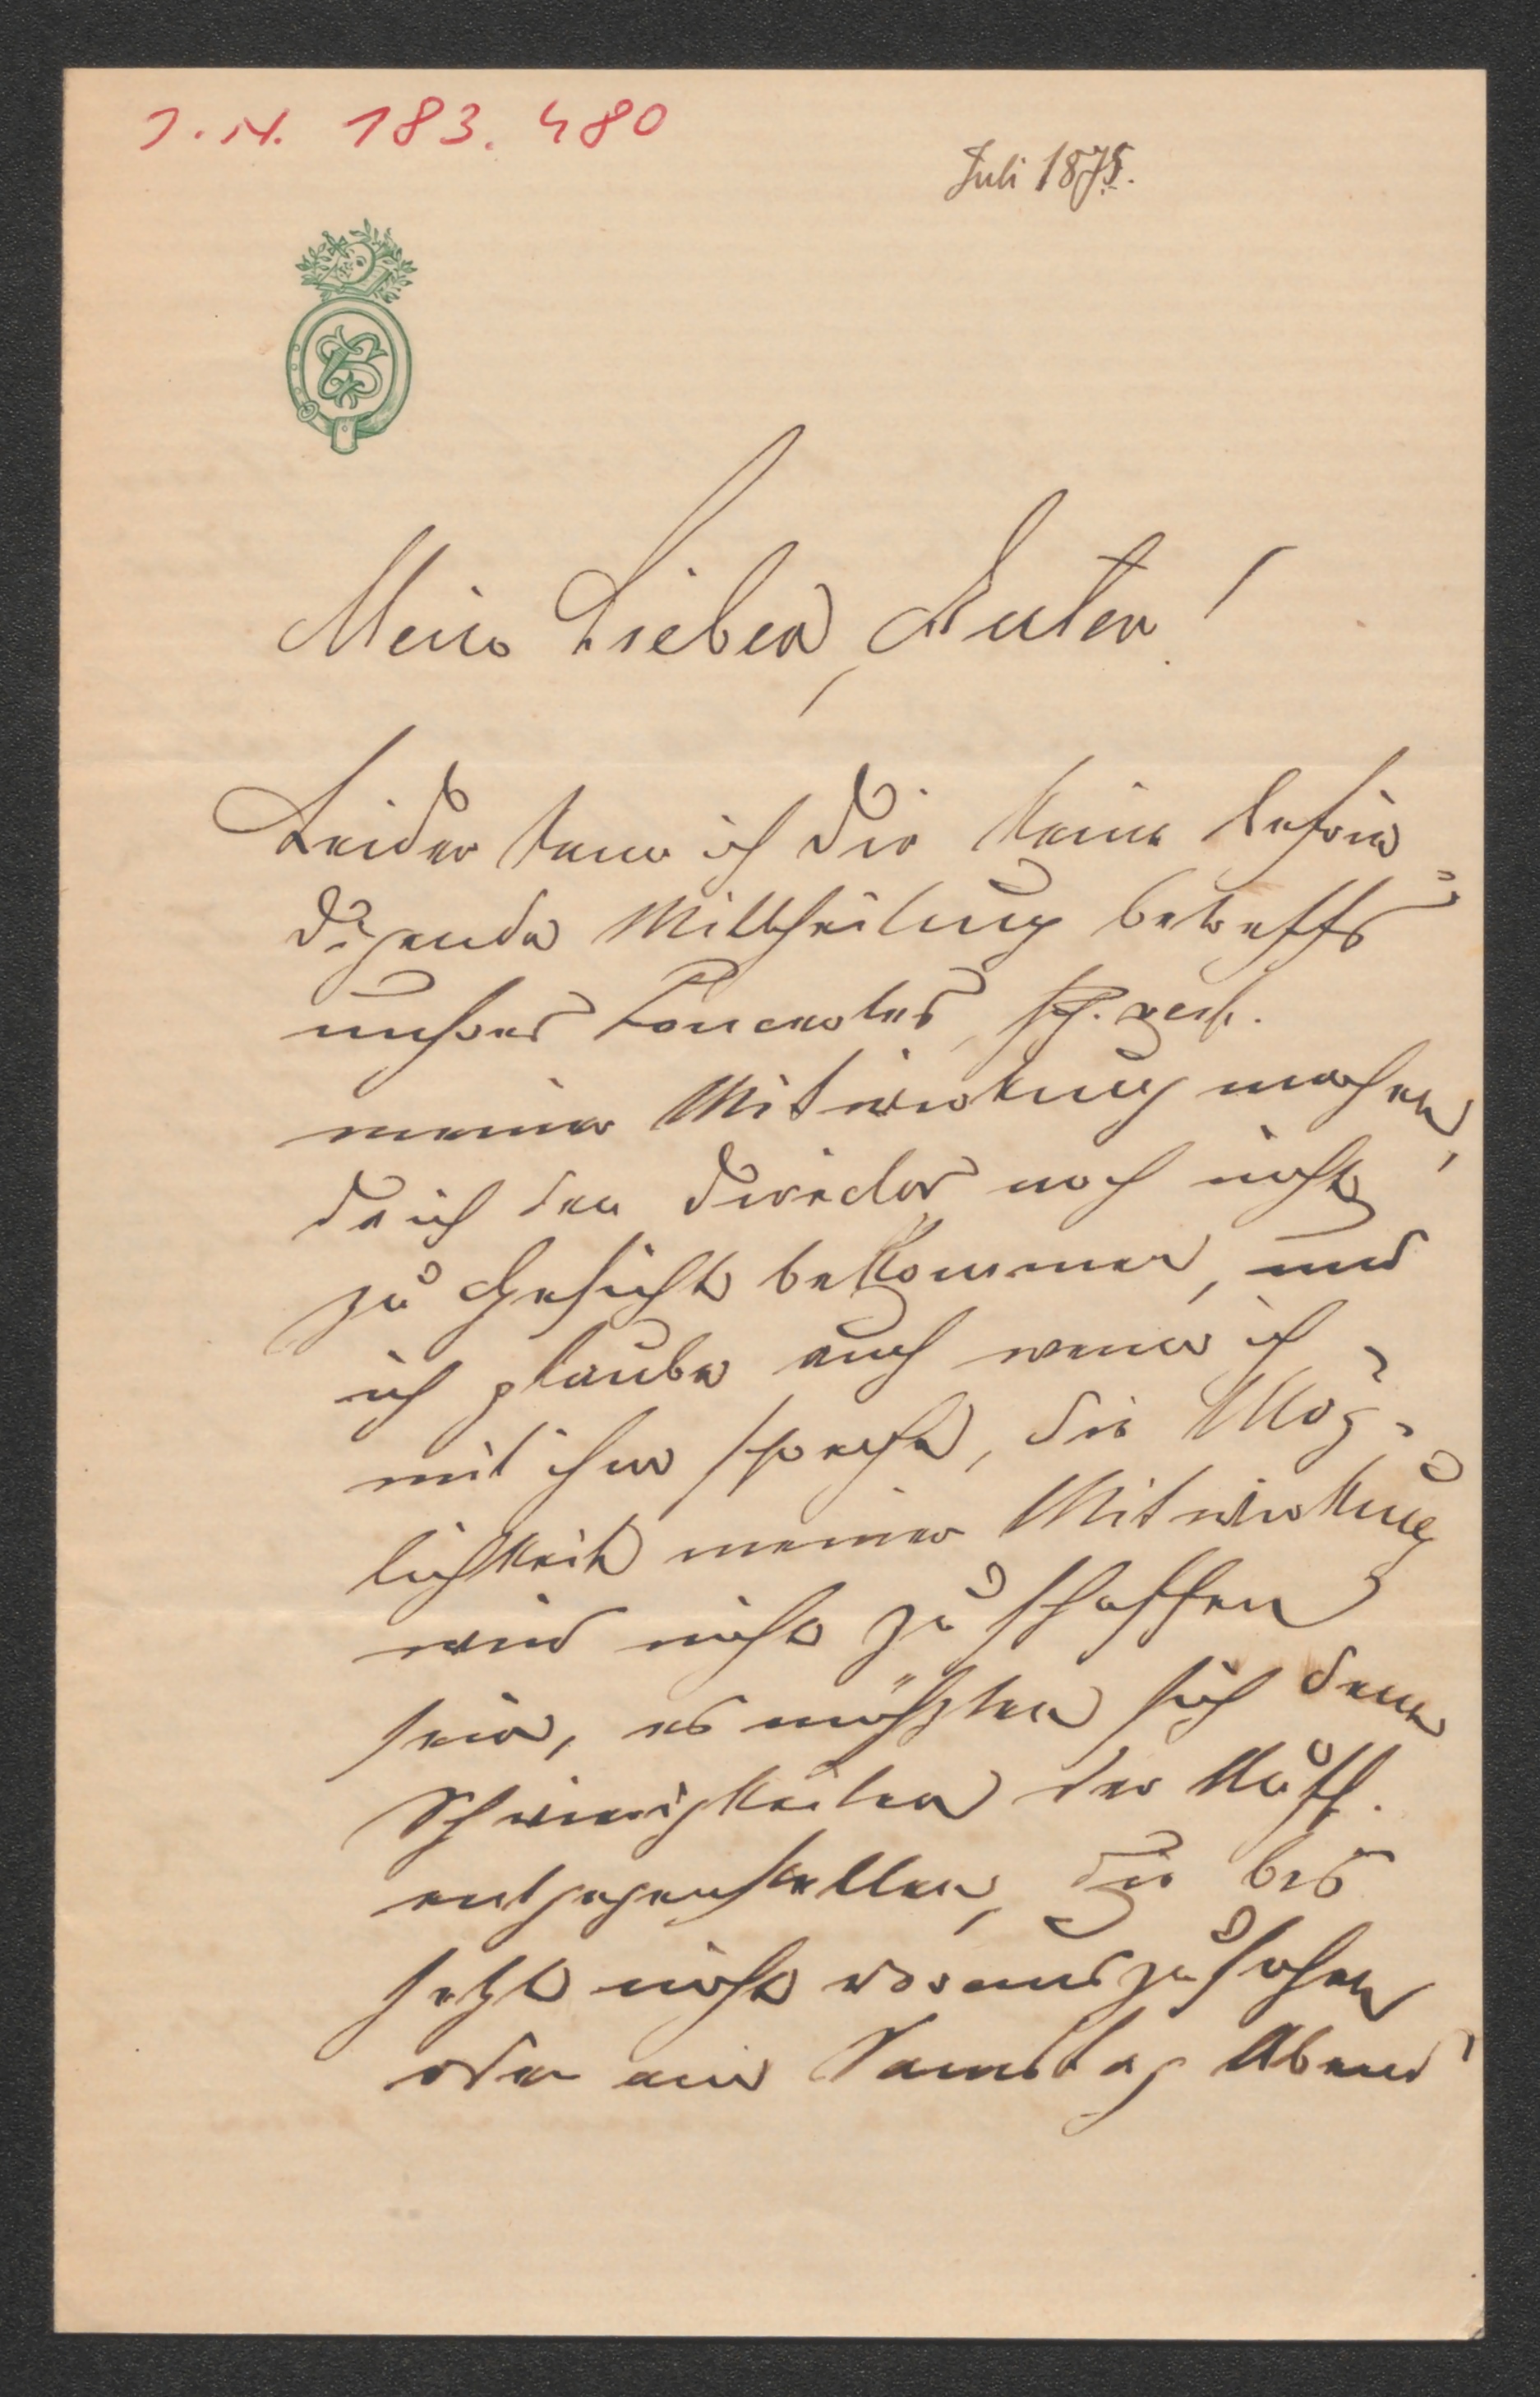 I. N. 183.480
Juli 1875.
Mein Lieber, Guter!
Leider kann ich Dir keine befrie-
digende Mittheilung betreffs
unsres Concertes,
meiner Mitwirkung machen,
da ich den Director noch nicht
zu Gesicht bekommen, und
ich glaube auch wenn ich
mit ihm spreche, die Mög-
lichkeit meiner Mitwirkung
wird nicht zu schaffen
sein, es müßten sich denn
Schwierigkeiten der
entgegenstellen, die bis
jetzt nicht vorauszusehen
oder ein Samstag Abend